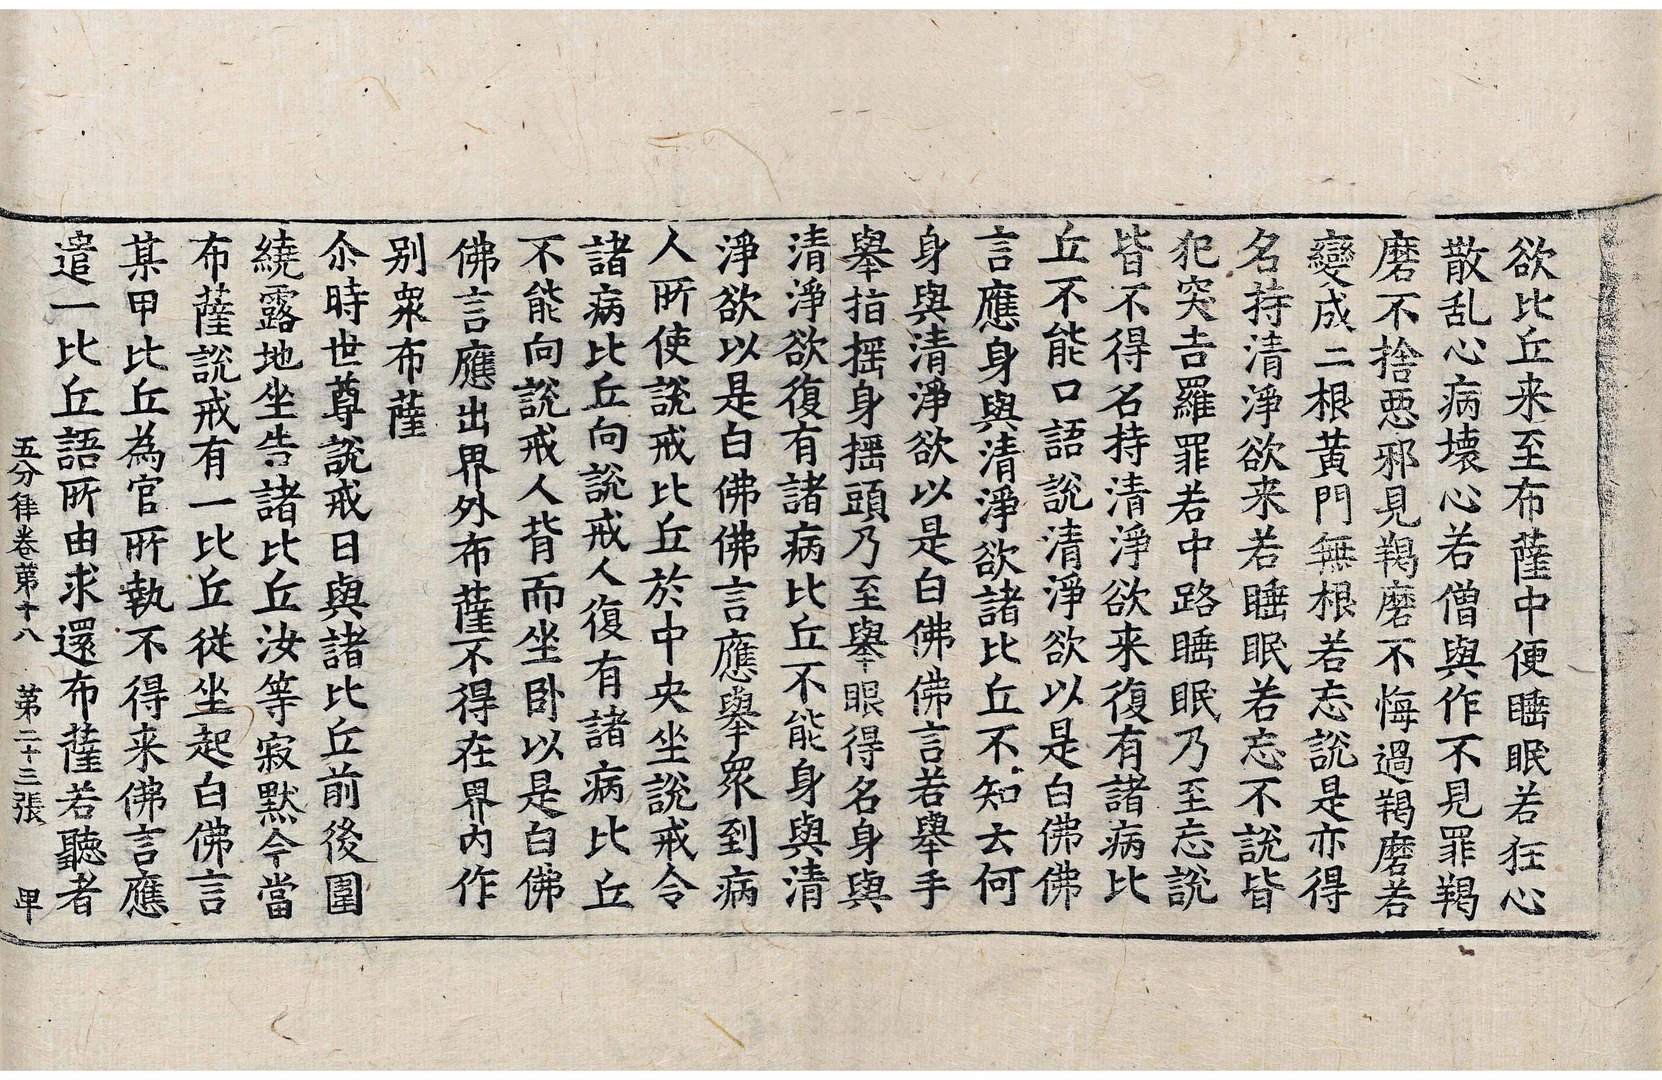 欲比丘来至布薩中便睡眠若狂心
散乱心病壞心若僧與作不見罪羯
磨不捨惡邪見羯磨不悔過羯磨若
變成二根黃門無根若忘說是亦得
名持清淨欲来若睡眠若忘不說皆
犯突吉羅罪若中路睡眠乃至忘說
皆不得名持清淨欲来復有諸病比
丘不能口語說清淨欲以是白佛佛
言應身與清淨欲諸比丘不知云何
身與清淨欲以是白佛佛言若舉手
舉指搖身搖頭乃至舉眼得名身與
清淨欲復有諸病比丘不能身與清
淨欲以是白佛佛言應舉眾到病
人所使說戒比丘於中央坐說戒令
諸病比丘向說戒人復有諸病比丘
不能向說戒人背而坐卧以是白佛
佛言應出界外布薩不得在界內作
别眾布薩
尒時世尊說戒日與諸比丘前後圍
繞露地坐告諸比丘汝等寂默今當
布薩說戒有一比丘従坐起白佛言
某甲比丘為官所執不得来佛言應
遣一比丘語所由求還布薩若聽者
五分律卷第十八 第二十三張 甲